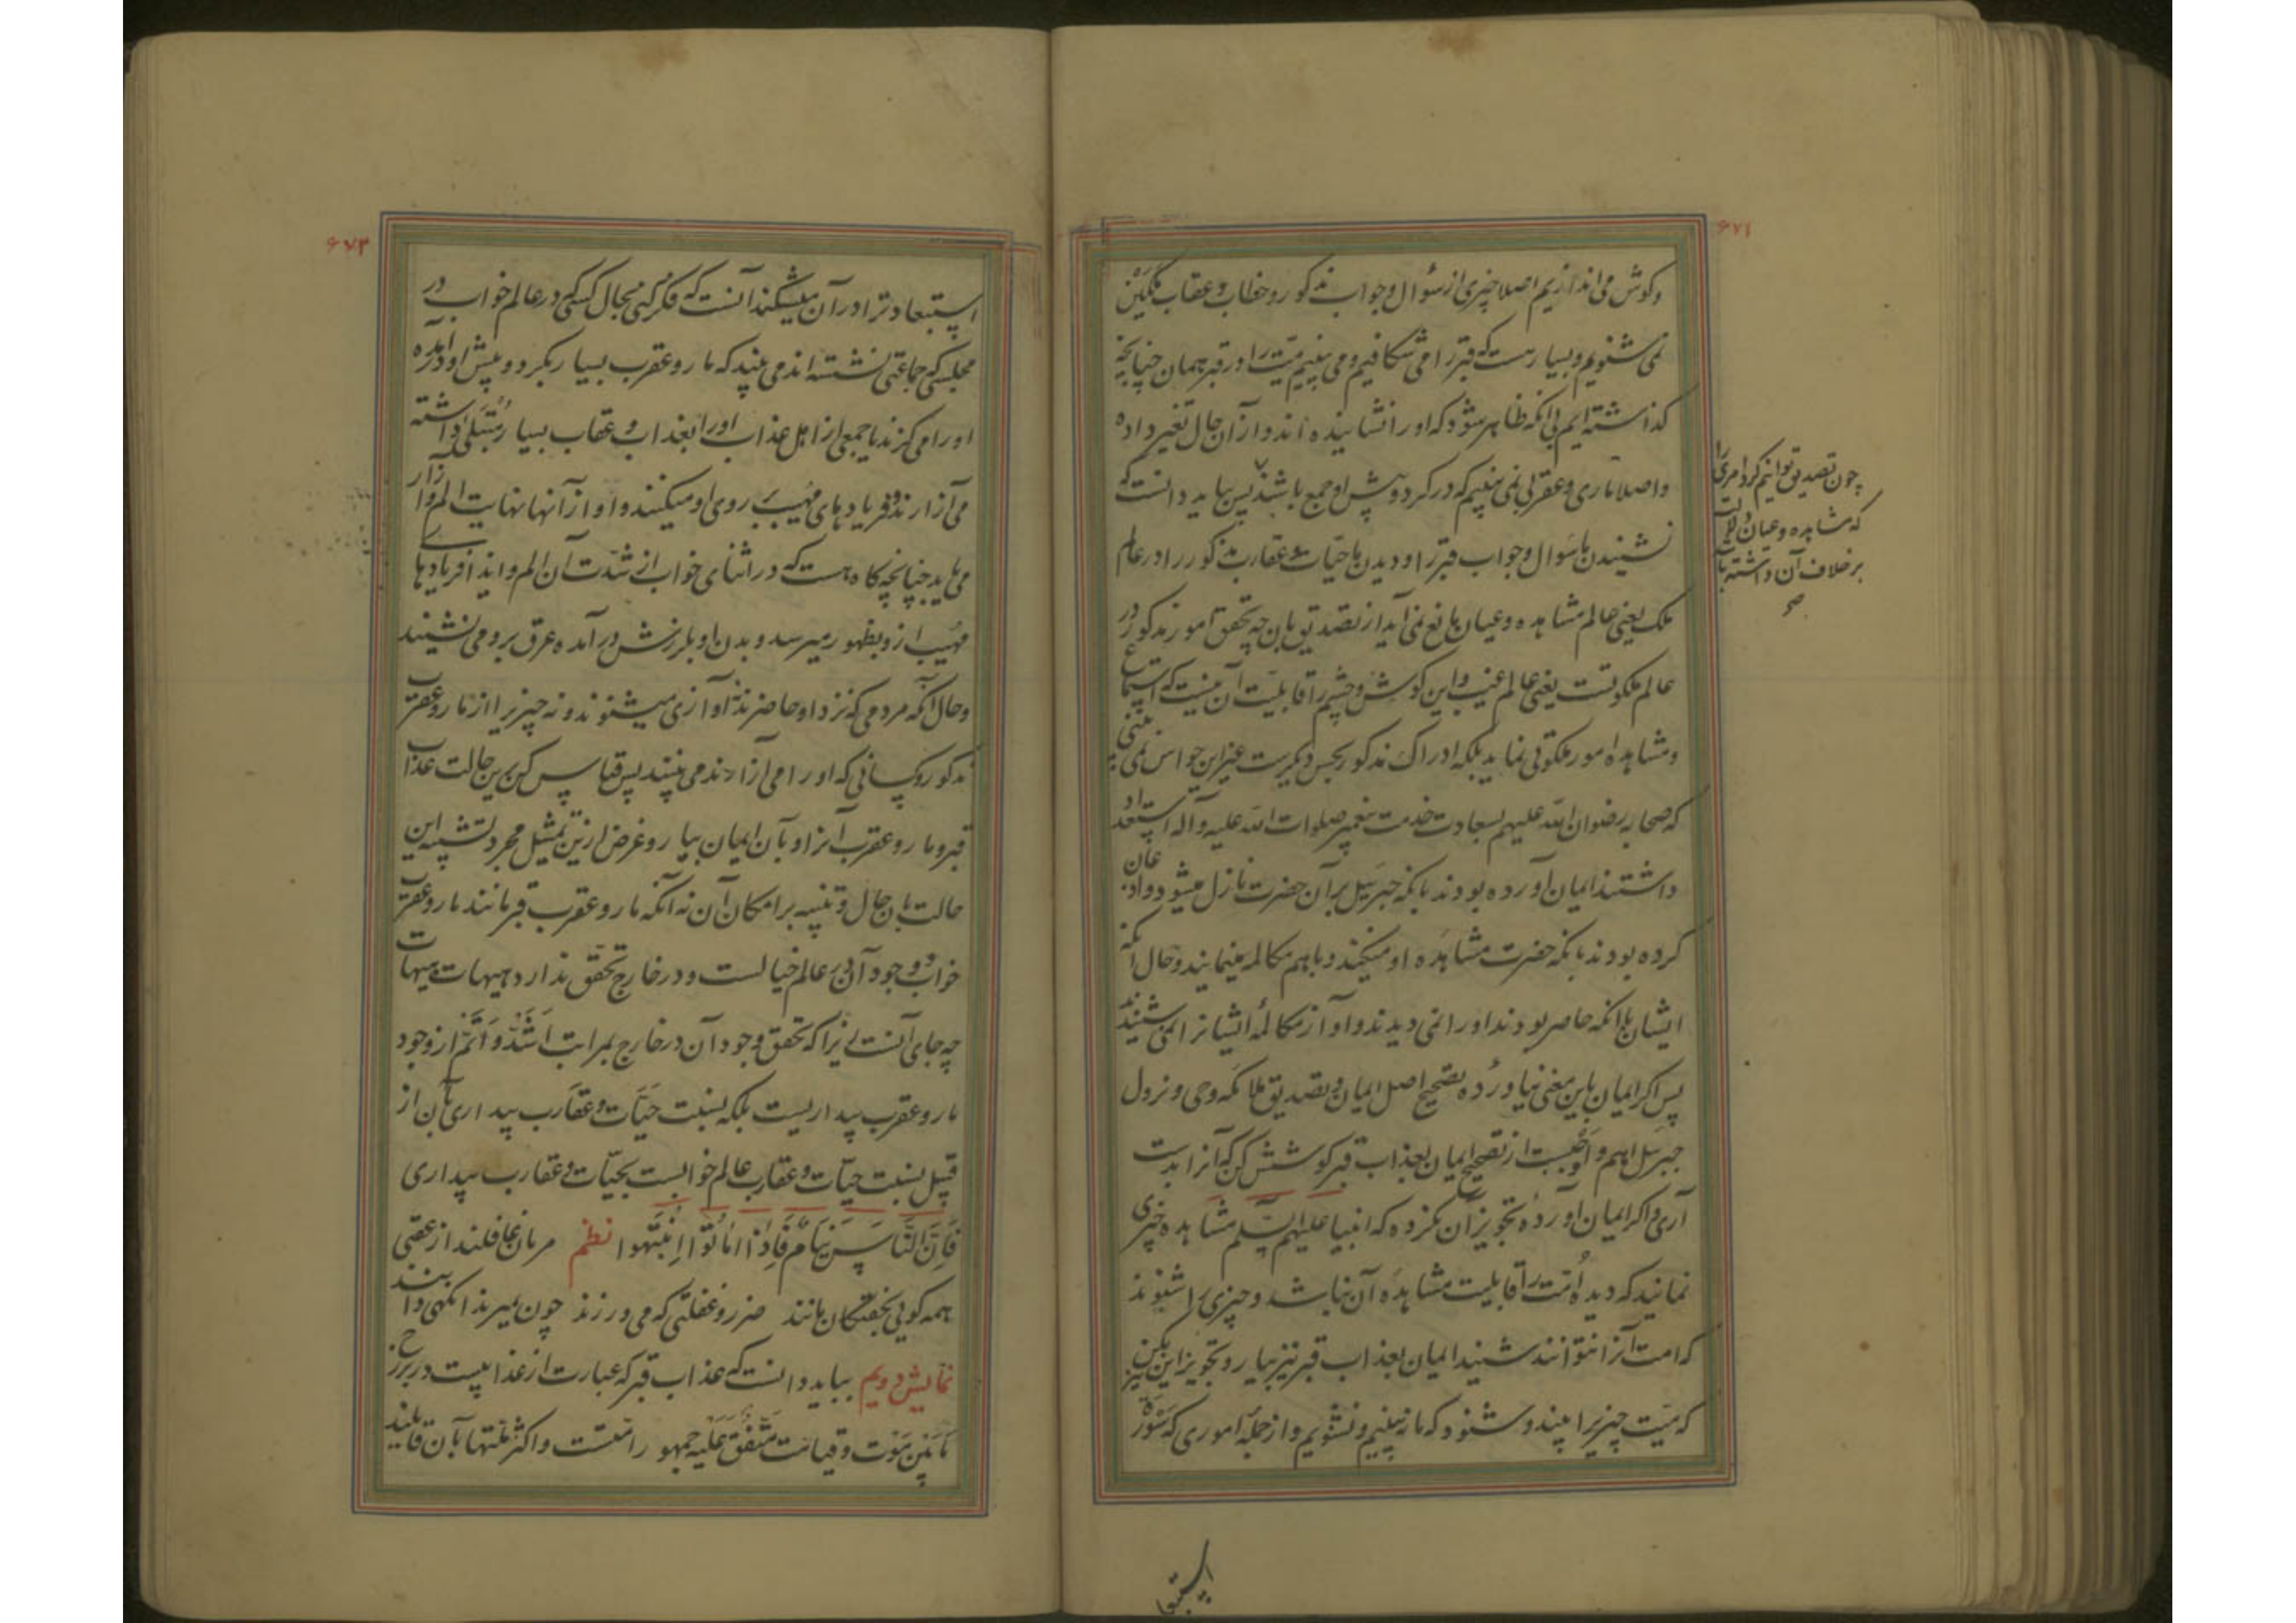 ۶۷۱
وکوش می‌اندازیم اصلا چیزی از سؤال و جواب مذکور و خطاب و عقاب ملکین
نمی‌شنویم و بسیارست که قبر را می شکافیم و می بینیم میّت را در قبر بهمان چنانچه
کذاشته‌ایم بی‌آنکه ظاهر شود که او را نشانیده اند و از آن حال تغیر داده
و اصلا ماری و عقربی نمی بینیم که در کرد و پیش او جمع باشند پس بباید دانست که
نشنیدن ما سؤال و جواب قبر را و ندیدن ما حیّات و عقارب مذکور را در عالم
ملک یعنی عالم مشاهده و عیان مانع نمی‌آید از تصدیق بآن چه تحقق امور مذکور در
عالم ملکوتست یعنی عالم غیب و این کوش و چشم را قابلیّت آن نیست که استماع
و مشاهده امور ملکوتی نماید بلکه ادراک مذکور بحس دیکرست غیر این حواس نمی بینی
که صحابه رضوان الله علیهم بسعادت خدمت پیغمبر صلوات الله علیه و آله استسعاد
داشتند ایمان آورده بودند بآنکه جبرییل بر آن حضرت نازل میشود و اذعان
کرده بودند بآنکه حضرت مشاهده او میکنند و باهم مکالمه مینمایند و حال آنکه
ایشان باآنکه حاضر بودند او را نمی دیدند و آواز مکالمهٔ ایشانرا نمی شنیدند
پس اکر ایمان باین معنی نیاورده تصحیح اصل ایمان و تصدیق ملائکه و حی و نزول
جبرییل اهم و اوجبست از تصحیح ایمان بعذاب قبر کوشش کن که آنرا بدست
آری و اکر ایمان آورده و تجویز آن کرده که انبیا علیهم السّلم مشاهده چیزی
نمانید که دیده امّت را قابلیت مشاهده آن نباشد و چیزی را شنوند
که امت آنرا نتوانند شنید ایمان بعذاب قبر نیز بیار و تجویز این نیز بکن
که میّت چیزیرا بیند و شنود که ما نبینیم و نشنویم و از جمله اموری که سَوْرَة
چون تصدیق توانیم کرد امری را
که مشاهده و عیان دلالت
بر خلاف آن داشته باشد
صح
استبعا
۶۷۲
استبعاد ترا در آن میشکند آنست که فکر کنی بحال کسی که در عالم خواب در
مجلسی که جماعتی نشسته اند می بیند که مار و عقرب بسیار بکرد و پیش او درآمده
او را می کزند یا جمعی از اهل عذاب او را بعذاب و عقاب بسیار مُبتلی داشته
می‌آزارند و فریادهای مهیب بر روی او میکنند و او از آنها نهایت الم و آزار
می‌یابد چنانچه کاه هست که در اثنای خواب از شدّت آن الم و ایذا فریادهای
مهیب ازو بظهور میرسد و بدن او بلرزش درآمده عرق برو می نشیند
و حال آنکه مردمی که نزد او حاضرند نه آوازی میشنوند و نه چیزیرا از مار و عقرب
مذکور و کسانی که او را می‌آزارند می بینند پس قیاس کن برین حالت عذاب
قبر و مار و عقرب آنرا و بآن ایمان بیار و غرض ازین تمثیل مجرد تشبیه این
حالت بآن حال و تنبیه بر امکان آن نه آنکه مار و عقرب قبر مانند مار و عقرب
خواب و وجود آن در عالم خیالست و در خارج تحقق ندارد هیهات هیهات
چه جای آنست زیرا که تحقق و وجود آن در خارج بمراتب اَشَدّ و اَتَمّ از وجود
مار و عقرب بیداریست بلکه نسبت حیّات و عقارب بیداری بآن از
قبیل نسبت حیّات و عقارب عالم خوابست بحیّات و عقارب بیداری
فَاِنَّ النَّاسَ نِیَامٌ فَاِذَا مَاتُوْا اِنْتَبَهوا نظم مردمان غافلند از عقبی
همه کویی بخفتکان مانند ضرر غفلتی که می ورزند چون بمیرند آنکهی دانند
نمایش دویم بباید دانست که عذاب قبر که عبارت از عذابیست در برزخ
مَا بَین مَوت و قیامت مُتّفَقٌ عَلَیْه جمهور امّتست و اکثر ملّتها بآن قایلند